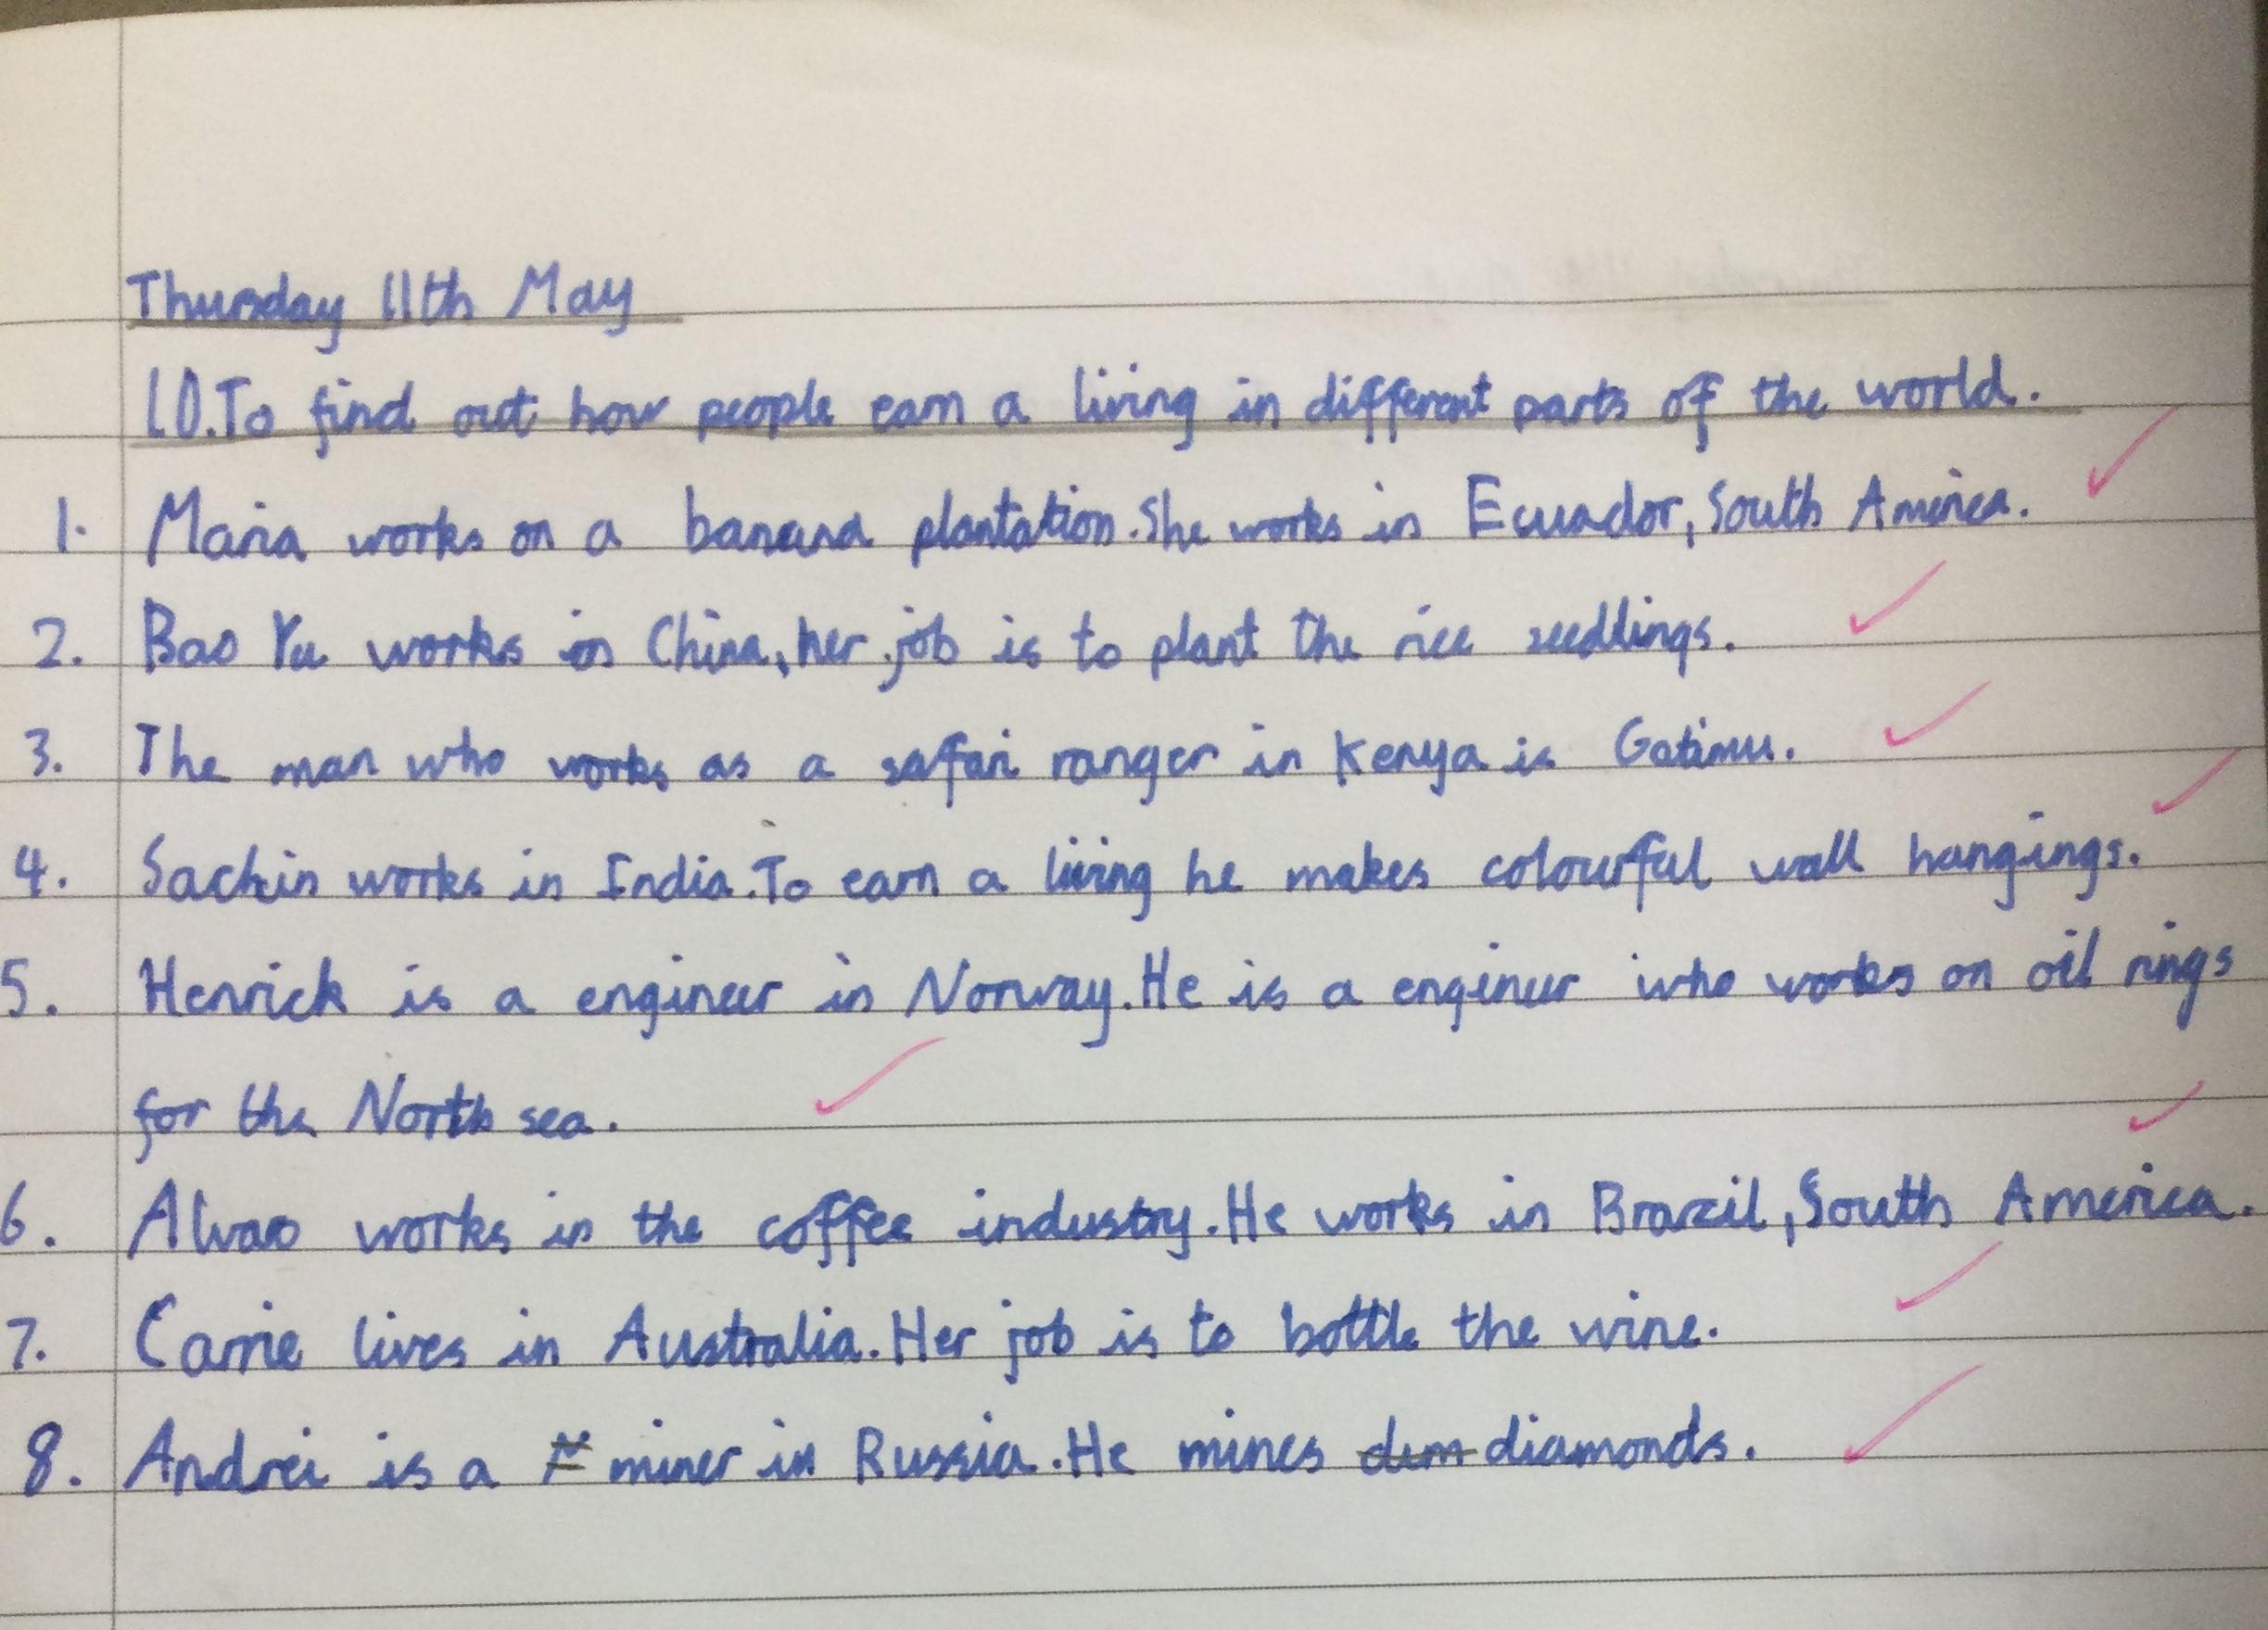 Thursday 11th May
L.O. To find out how people earn a living in different parts of the world.
1. Maria works on a banana plantation. She works in Ecuador, South America.
2. Bao Yu works in China, her job is to plant the rice seedlings.
3. The man who works as a safari ranger in Kenya is Gatimu.
4. Sachin works in India. To earn a living he makes colourful wall hangings.
5. Henrick is a engineer in Norway. He is a engineer who works on oil rings
for the North sea.
6. Alvao works in the coffee industry. He works in Brazil, South America.
7. Carrie lives in Australia. Her job is to bottle the wine.
8. Andrei is a miner in Russia. He mines dim diamonds.